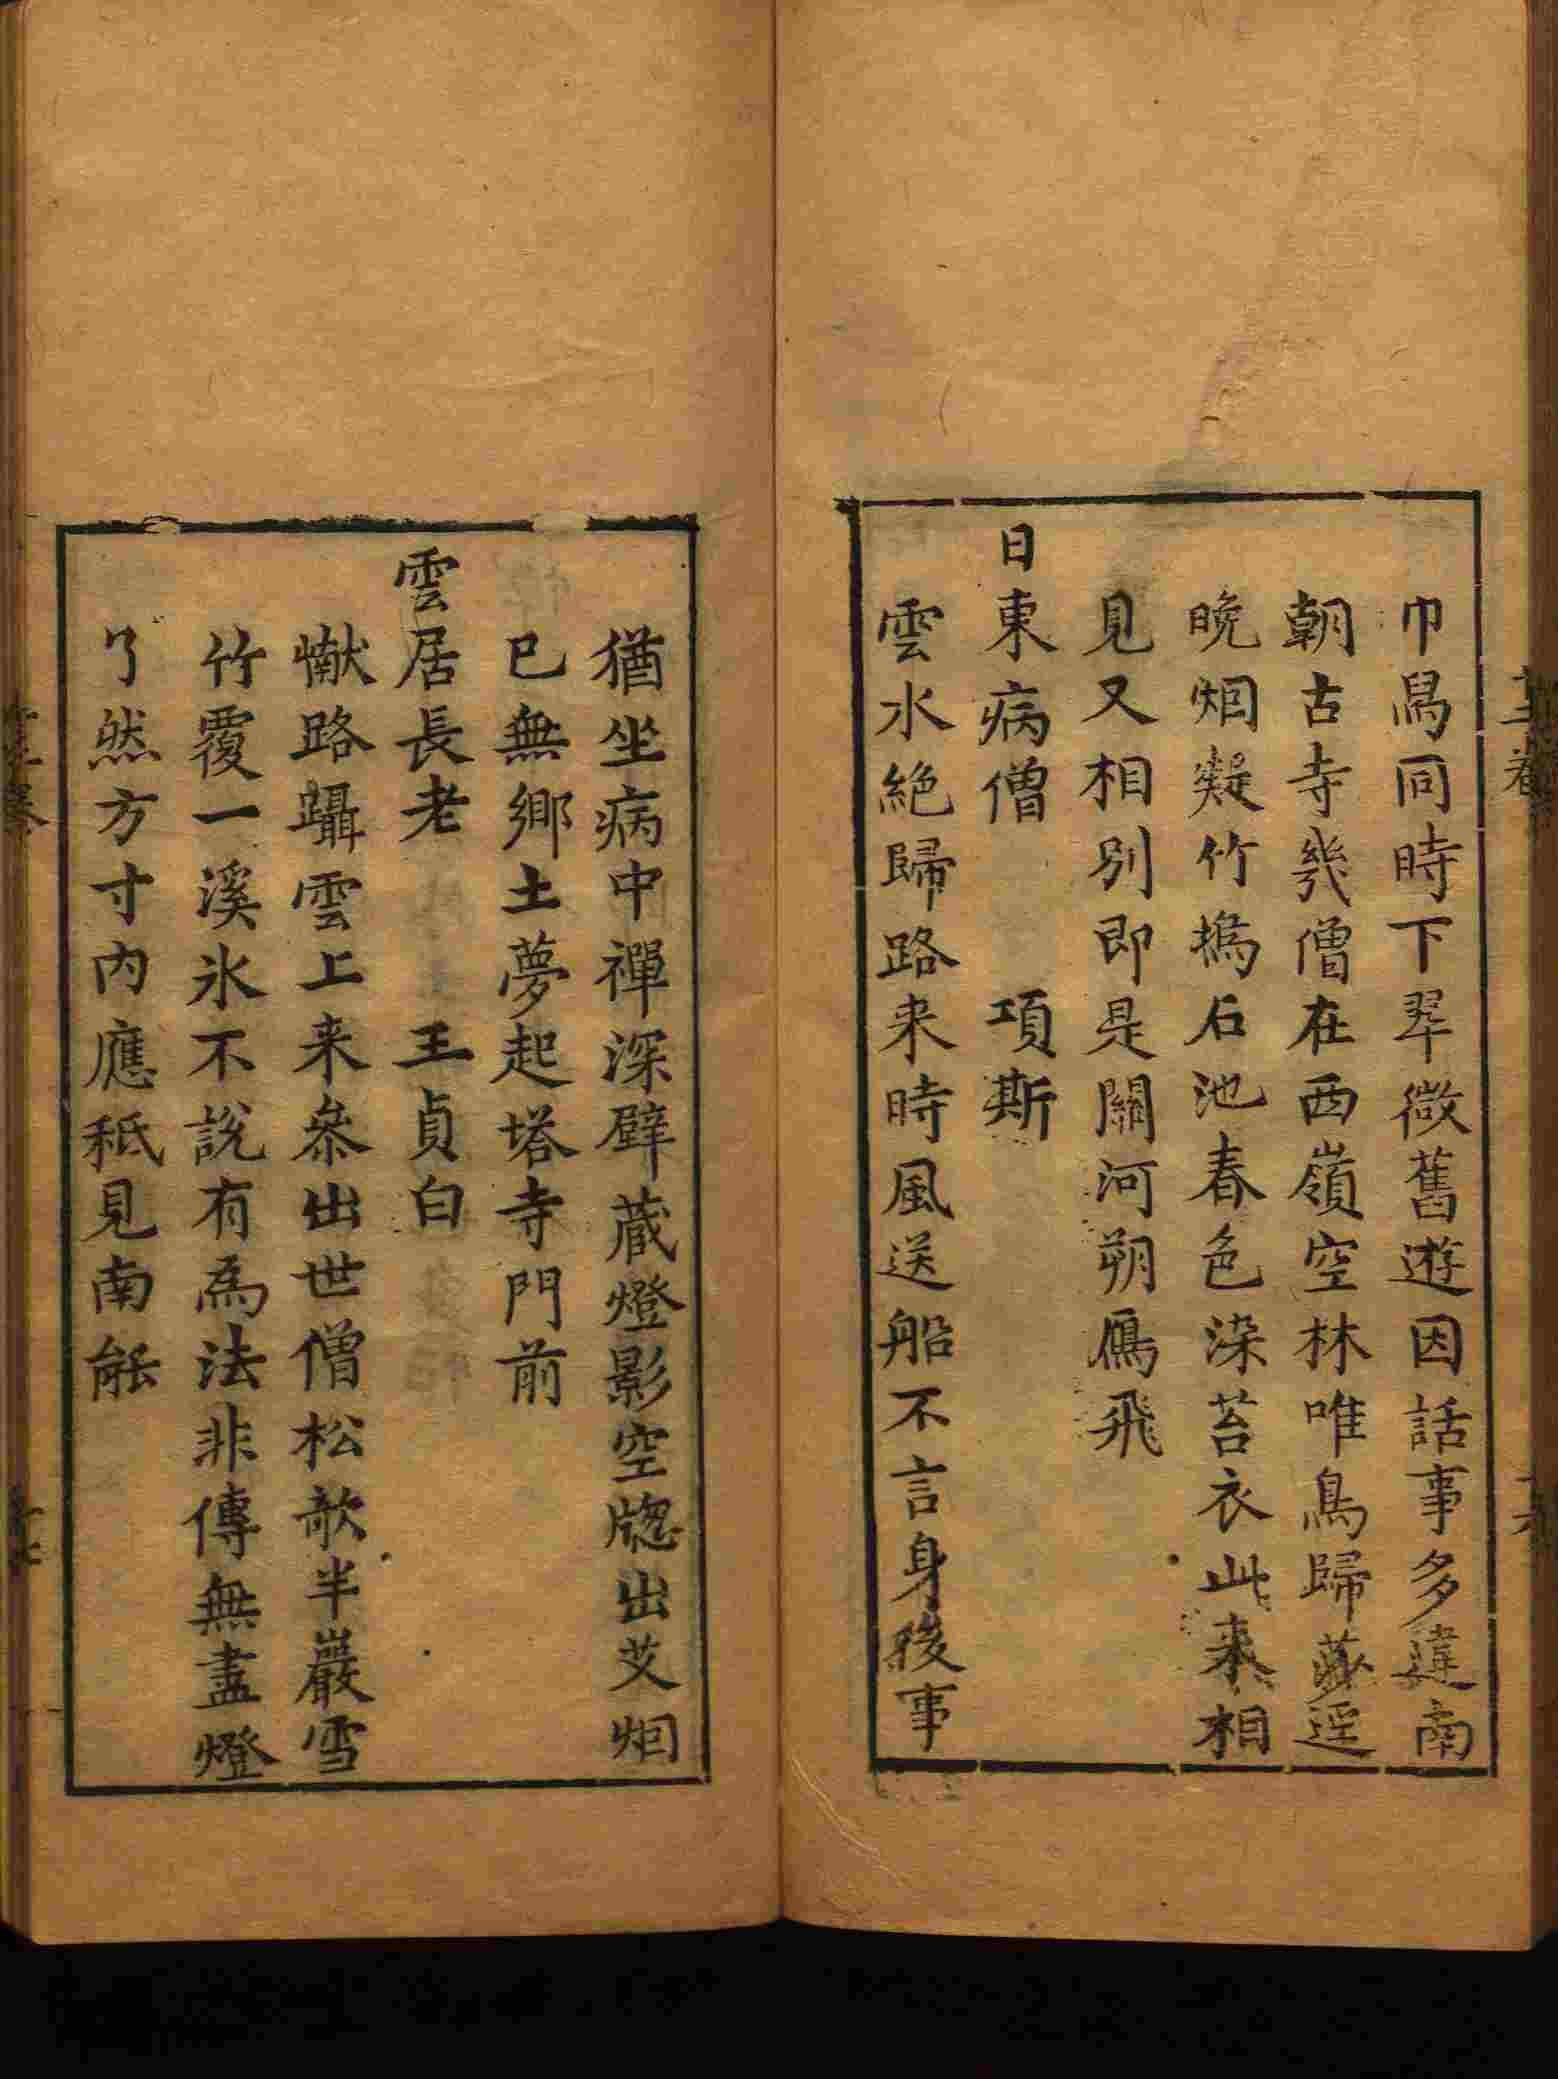 巾舄同時下翠微舊遊因話事多違南
朝古寺幾僧在西嶺空林唯鳥歸莎逕
晚烟凝竹塢石池春色染苔衣此來相
見又相別即是關河朔鴈飛
日東病僧 項斯
雲水絶歸路来時風送船不言身後事
猶坐病中禪深壁藏燈影空牕出艾烟
已無鄉土夢起塔寺門前
雲居長老 王貞白
巘路躡雲上来叅出世僧松欹半巖雪
竹覆一溪氷不說有為法非傳無盡燈
了然方寸内應秪見南能